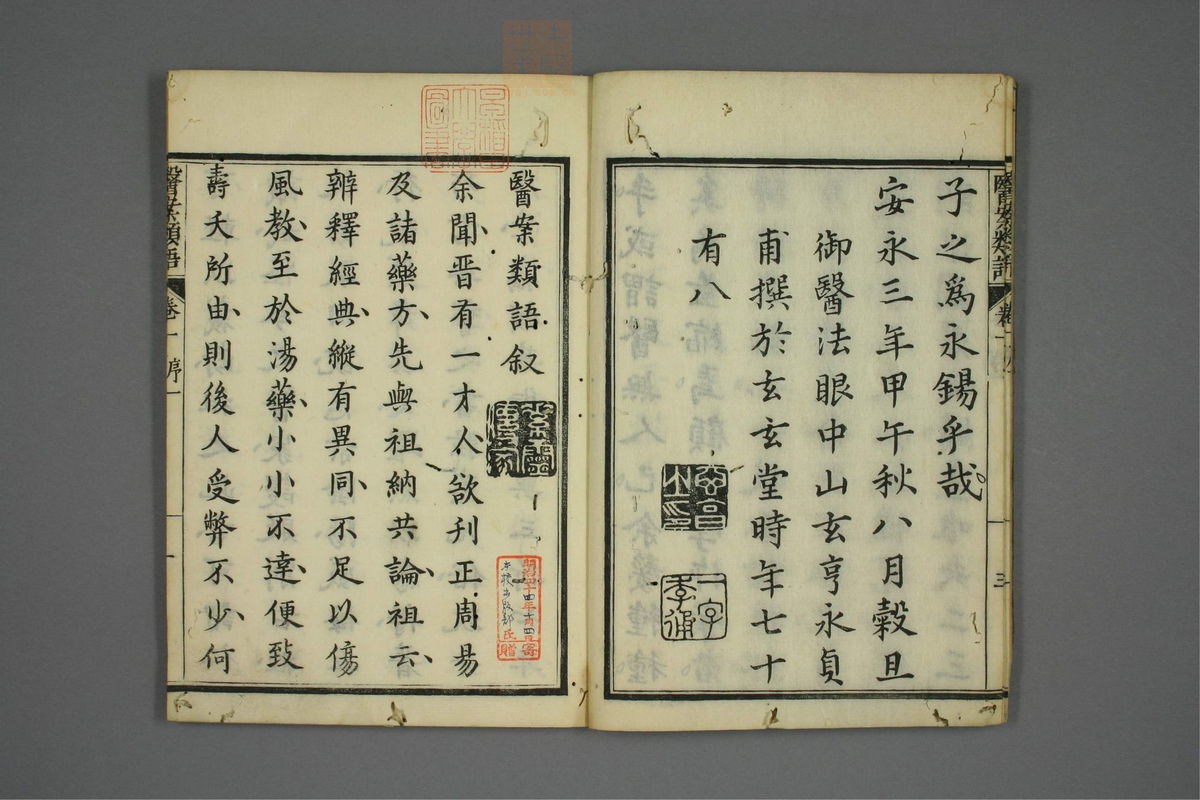 子之爲永錫乎哉
安永三年甲午秋八月穀旦
御醫法眼中山玄亨永貞
甫撰於玄玄堂時年七十
有八
醫案類語 卷一
三
醫案類語叙
余聞晋有一才人欲刊正周易
及諸藥方先與祖納共論祖云
辨釋經典縱有異同不足以傷
風教至於湯藥小小不達便致
壽夭所由則後人受弊不少何
醫案類語 卷一 序一
明治四十四年
寄贈